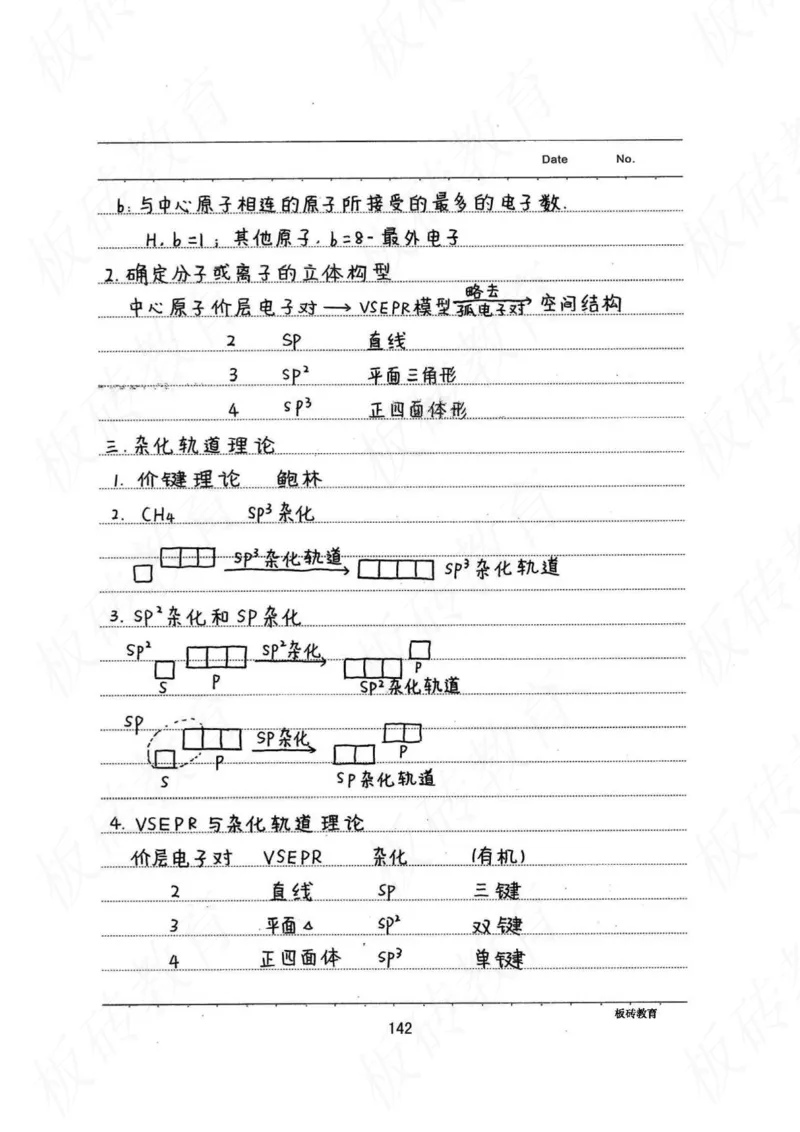 Date No.
b:与中心原子相连的原子所接受的最多的电子数.
H,b=1;其他原子,b=8-最外电子
2.确定分子或离子的立体构型
中心原子价层电子对→VSEPR模型 略去孤电子对→ 空间结构
2 SP 直线
3 SP² 平面三角形
4 SP³ 正四面体形
三.杂化轨道理论
1.价键理论 鲍林
2.CH₄ SP³杂化
SP³杂化轨道 SP³杂化轨道
3.SP²杂化和SP杂化
SP² SP²杂化
S P P
SP²杂化轨道
SP SP杂化
P P
S SP杂化轨道
4.VSEPR与杂化轨道理论
价层电子对 VSEPR 杂化 (有机)
2 直线 SP 三键
3 平面△ SP² 双键
4 正四面体 SP³ 单键
板砖教育
142